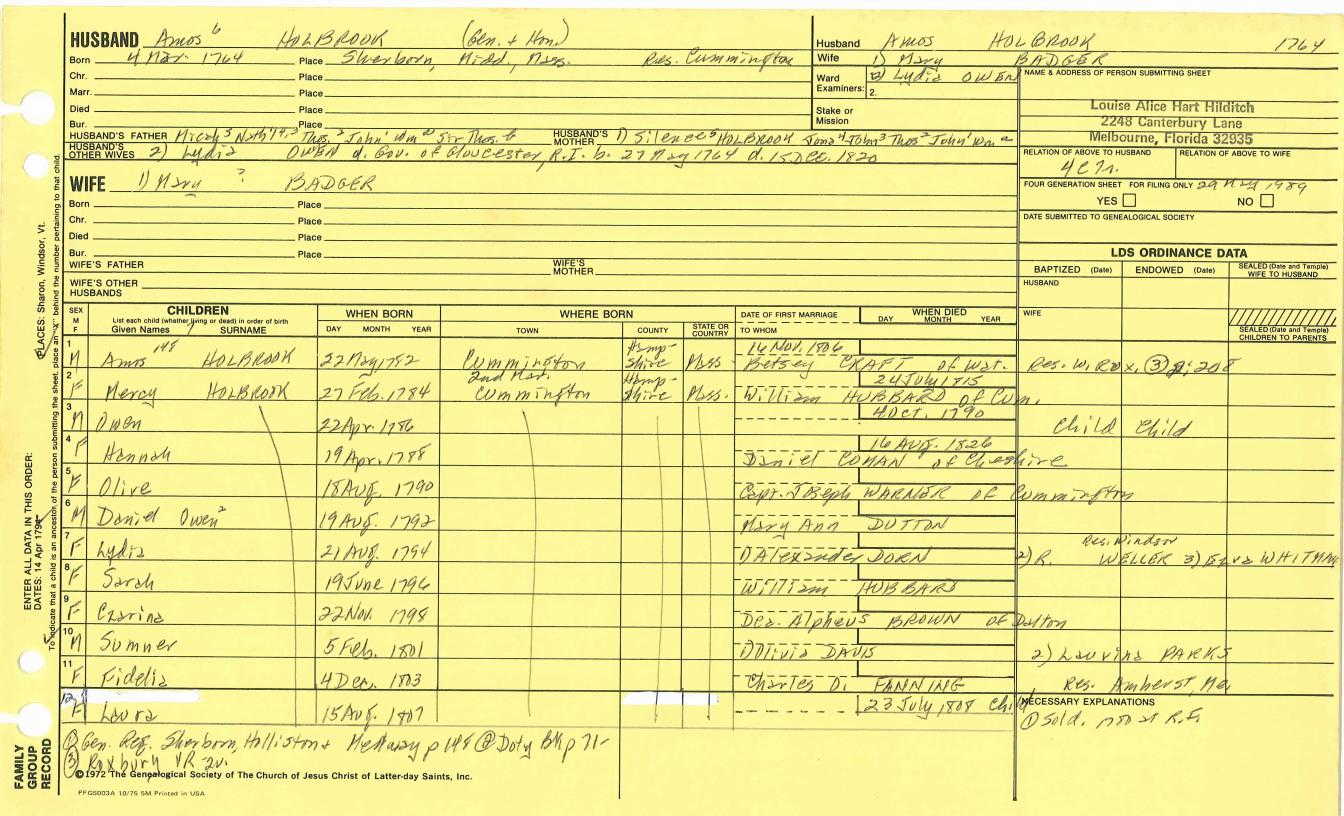 HUSBAND Amos 6 HOLBROOK (Gen. + Hon.)
Born 4 Mar. 1764 Place Sherborn, Midd., Mass. Res. Cummington
Chr. Place
Marr. Place
Died Place
Bur. Place
HUSBAND'S FATHER Micah 5 Nath'l 4,3 Thos. 2 John 1 Wm a Sir Thos. b HUSBAND'S MOTHER 1) Silence 5 HOLBROOK Jona 4 John 3 Thos 2 John 1 Wm a
HUSBAND'S OTHER WIVES 2) Lydia OWEN d. Gov. of Gloucester R.I. b. 27 May 1764 d. 15 DEC. 1820
WIFE 1) Mary ? BADGER
Born Place
Chr. Place
Died Place
Bur. Place
WIFE'S FATHER WIFE'S MOTHER
WIFE'S OTHER HUSBANDS
Husband AMOS HOLBROOK 1764
Wife 1) Mary BADGER
Ward Examiners: 2) Lydia OWEN
2.
Stake or Mission
NAME & ADDRESS OF PERSON SUBMITTING SHEET
Louise Alice Hart Hilditch
2248 Canterbury Lane
Melbourne, Florida 32935
RELATION OF ABOVE TO HUSBAND RELATION OF ABOVE TO WIFE
4c7r.
FOUR GENERATION SHEET FOR FILING ONLY 29 May 1989
YES NO
DATE SUBMITTED TO GENEALOGICAL SOCIETY
LDS ORDINANCE DATA
BAPTIZED (Date) ENDOWED (Date) SEALED (Date and Temple) WIFE TO HUSBAND
HUSBAND
WIFE
SEALED (Date and Temple) CHILDREN TO PARENTS
SEX M F CHILDREN WHEN BORN WHERE BORN DATE OF FIRST MARRIAGE WHEN DIED
List each child (whether living or dead) in order of birth
Given Names SURNAME DAY MONTH YEAR TOWN COUNTY STATE OR COUNTRY TO WHOM DAY MONTH YEAR
1 16 NOV. 1806
M Amos 148 HOLBROOK 22 May 1782 Cummington Hampshire Mass Betsey CRAFT of Wat. Res. W. Rox. (3) p. 208
2 2nd Mar. 24 July 1815
F Mercy HOLBROOK 27 Feb. 1784 Cummington Hampshire Mass. William HUBBARD of Cum.
3 4 Oct. 1790
M Owen 22 Apr. 1786 Child Child
4 16 AUG. 1826
F Hannah 19 Apr. 1788 Daniel COMAN of Cheshire
5
F Olive 18 AUG. 1790 Capt. Joseph WARNER of Cummington
6
M Daniel Owen 2 19 AUG. 1792 Mary Ann DUTTON
7 Res. Windsor
F Lydia 21 AUG. 1794 1) Alexander DORN 2) R. WELLER 3) Ezra WHITMAN
8
F Sarah 19 June 1796 William HUBBARD
9
F Czarina 22 Nov. 1798 Dea. Alpheus BROWN of Dalton
10
M Sumner 5 Feb. 1801 1) Olivia DAVIS 2) Laurina PARKS
11
F Fidelia 4 Dec. 1803 Charles D. FANNING Res. Amherst, Ma.
12
F Laura 15 AUG. 1807 23 July 1808 Child
NECESSARY EXPLANATIONS
(1) Sold. 1780 at R.I.
(1) Gen. Reg. Sherborn, Holliston + Medway p 148 (2) Doty Bk p 71-
(3) Roxbury VR 2v.
©1972 The Genealogical Society of The Church of Jesus Christ of Latter-day Saints, Inc.
PFGS003A 10/75 5M Printed in USA
FAMILY GROUP RECORD
ENTER ALL DATA IN THIS ORDER:
DATES: 14 Apr 1794
PLACES: Sharon, Windsor, Vt.
To indicate that a child is an ancestor of the person submitting the sheet, place an "X" behind the number pertaining to that child.